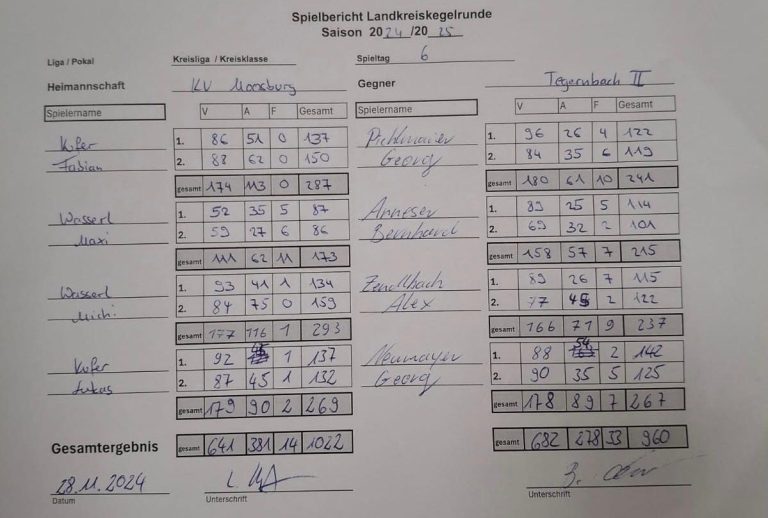 Spielbericht Landkreiskegelrunde
Saison 2024/2025
Liga / Pokal Kreisliga / Kreisklasse Spieltag 6
Heimannschaft KV Moosburg Gegner Tegernbach II
Spielername V A F Gesamt Spielername V A F Gesamt
Kufer 1. 86 51 0 137 Pichlmaier 1. 96 26 4 122
Fabian 2. 88 62 0 150 Georg 2. 84 35 6 119
gesamt 174 113 0 287 gesamt 180 61 10 241
Wasserl 1. 52 35 5 87 Anneser 1. 89 25 5 114
Maxi 2. 59 27 6 86 Bernhard 2. 69 32 2 101
gesamt 111 62 11 173 gesamt 158 57 7 215
Wasserl 1. 93 41 1 134 Zendlbach 1. 89 26 7 115
Michi 2. 84 75 0 159 Alex 2. 77 45 2 122
gesamt 177 116 1 293 gesamt 166 71 9 237
Kufer 1. 92 45 1 137 Neumayer 1. 88 54 2 142
Lukas 2. 87 45 1 132 Georg 2. 90 35 5 125
gesamt 179 90 2 269 gesamt 178 89 7 267
Gesamtergebnis gesamt 641 381 14 1022 gesamt 682 278 33 960
28.11.2024
Datum Unterschrift Unterschrift